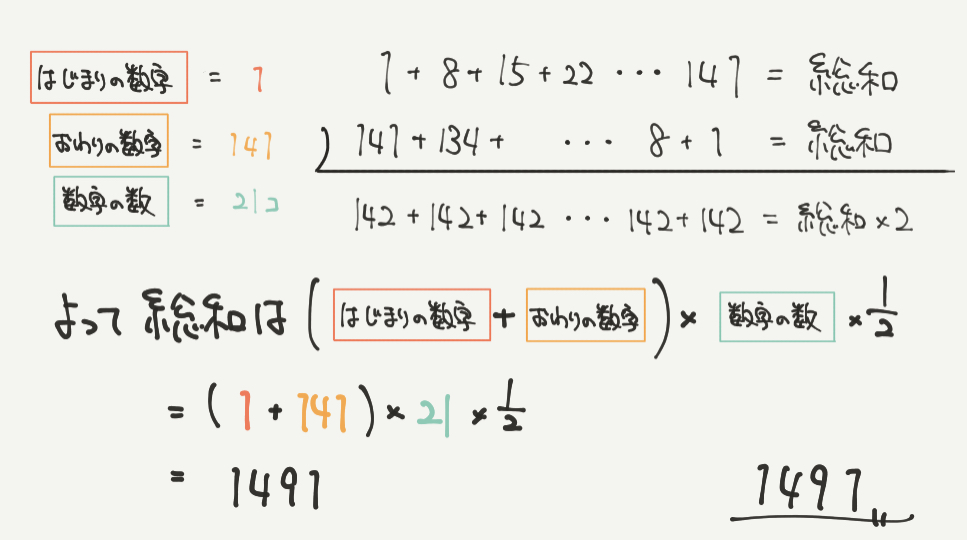 はじまりの数字 = 1
おわりの数字 = 141
数字の数 = 21コ
1 + 8 + 15 + 22 ・・・ 141 = 総和
) 141 + 134 + ・・・ 8 + 1 = 総和
142 + 142 + 142 ・・・ 142 + 142 = 総和 × 2
よって 総和は ( はじまりの数字 + おわりの数字 ) × 数字の数 × 1/2
= ( 1 + 141 ) × 21 × 1/2
= 1491
1491〃